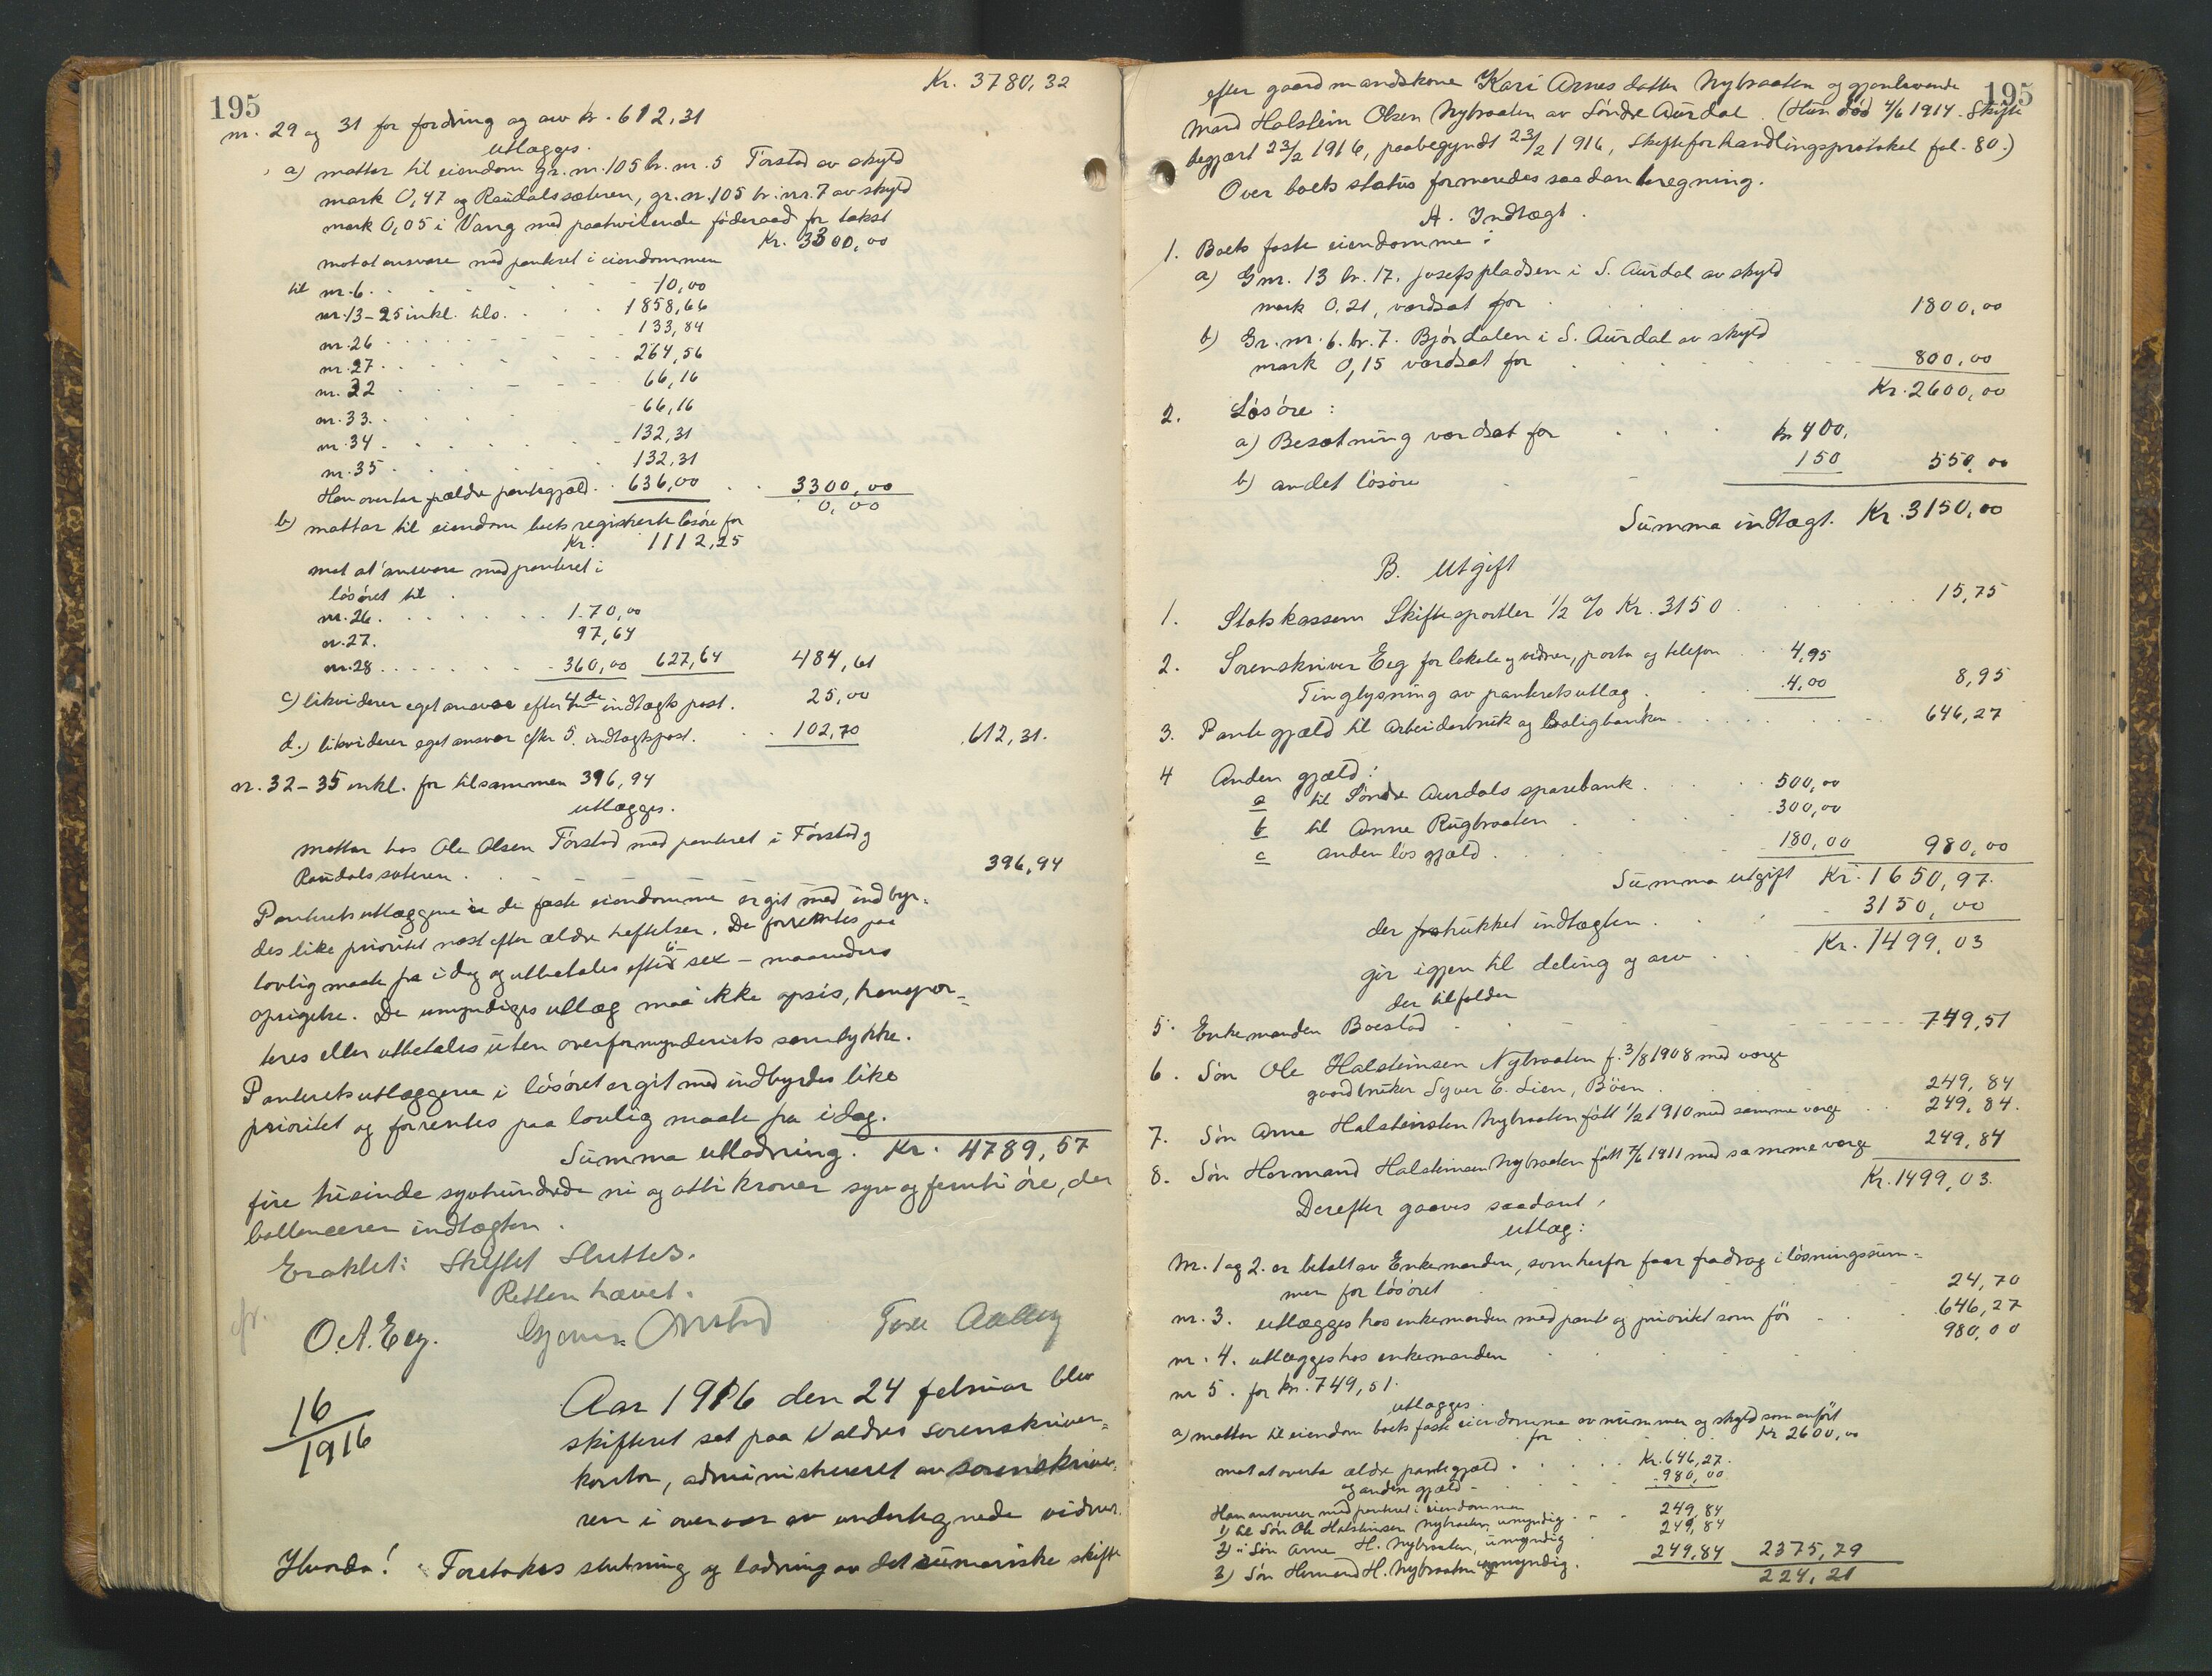 195
Kr. 3780,32
nr. 29 og 31 for fordring og arv kr. 612,31
utlægges.
a) mottar til eiendom Gr. nr. 105 br. nr. 5 Tørstad av skyld
mark 0,47 og Raudalssæteren, gr. nr. 105 br. nr. 7 av skyld
mark 0,05 i Vang med paahvilende føderaad for takst
Kr. 3300,00
mot at ansvare med panteret i eiendommen
til nr. 6. 10,00
nr. 13-25 inkl. tils. 1858,66
nr. 26 133,84
nr. 27. 264,56
nr. 32 66,16
nr. 33. 66,16
nr. 34 - 132,31
nr. 35 132,31
Han overtar ældre pantegjæld. 636,00 3300,00
0,00
b) mottar til eiendom boets registrerte løsøre for
Kr. 1112,25
mot at ansvare med panteret i
løsøret til
nr. 26. 170,00
nr. 27. 97,64
nr. 28 360,00 627,64 484,61
c) likviderer eget ansvar efter 4de indtægts post. 25,00
d.) likviderer eget ansvar efter 5. indtægtspost. 102,70 612,31.
nr. 32-35 inkl. for tilsammen 396,94
utlægges.
mottar hos Ole Olsen Tørstad med panteret i Tørstad og
Raudalssæteren. 396,94
Panteretsutlæggene i de faste eiendomme er git med indbyr-
des like prioritet næst efter ældre heftelser. De forrentes paa
lovlig maate fra i dag og utbetales efter 6- sex - maaneders
opsigelse. De umyndiges utlæg maa ikke opsis, transpor-
teres eller utbetales uten overformynderiets samtykke.
Panteretsutlæggene i løsøret er git med indbyrdes like
prioritet og forrentes paa lovlig maate fra idag.
Summa utlodning. Kr. 4789,57
fire tusinde syvhundrede ni og otti kroner syv og femti øre, der
ballancerer indtægten.
Eraktet: Skiftet sluttes.
Retten hævet.
O.A. Eeg.
16/1916
Aar 1916 den 24 februar blev
skifteret sat paa Valdres sorenskriver-
kontor, administreret av sorenskrive-
ren i overvær av undertegnede vidner.
Hvorda! Foretokes slutning og lodning av det sumariske skifte
195
efter gaardmandskone Kari Arnesdatter Nybraaten og gjenlevende
mand Halstein Olsen Nybraaten av Søndre Aurdal. (Hun død 4/6 1914. Skifte
begjært 23/2 1916, paabegyndt 23/2 1916, Skifteforhandlingsprotokol fol. 80.)
Over boets status formeredes saadan beregning.
A. Indtægt.
1. Boets faste eiendomme:
a) Gnr. 13 br. 17. Josefspladsen i S. Aurdal av skyld
mark 0,21, værdsat for 1800,00
b) Gr. nr. 6. br. 7. Bjørdalen i S. Aurdal av skyld
mark 0,15 værdsat for 800,00
Kr. 2600,00
2. Løsøre:
a) Besætning værdsat for kr 400,
b) andet løsøre 150 550,00
Summa indtægt. Kr. 3150,00
B. Utgift
1. Statskassen Skiftesportler 1/2 % Kr. 3150 15,75
2. Sorenskriver Eeg for lokale og vidner, porto og telefon 4,95
Tinglysning av panteretsutlæg. 4,00 8,95
3. Pantegjæld til Arbeiderbruk og Boligbanken 646,27
4 Anden gjæld:
a til Søndre Aurdals sparebank 500,00
b til Anne Rugbraaten 300,00
c anden løs gjæld. 180,00 980,00
Summa utgift Kr. 1650,97.
der fratrukket indtægten. 3150,00
gir igjen til deling og arv Kr. 1499,03
der tilfalder
5. Enkemanden Boeslod 749,51
6. Søn Ole Halsteinsen Nybraaten f. 3/8 1908 med værge
gaardbruker Syver E. Lien, Bøen 249,84
7. Søn Arne Halsteinsten Nybraaten født 1/2 1910 med samme værge 249,84.
8. Søn Hermand Halsteinsen Nybraaten født 7/6 1911 med samme værge 249,84
Kr. 1499,03.
Derefter gaaves saadant
utlæg:
Nr. 1 og 2. er betalt av Enkemanden, som herfor faar fradrag i løsningssum-
men for løsøret 24,70
nr. 3. utlægges hos enkemanden med pant og prioritet som før 646,27
nr. 4. utlægges hos enkemanden 980,00
nr 5. for kr. 749,51.
utlægges.
a) mottar til eiendom boets faste eiendomme av nummer og skyld som anført
for Kr 2600,00
mot at overta ældre pantegjæld Kr. 646,27.
og anden gjæld - 980,00
Han ansvarer med panteret i eiendommen
1) til Søn Ole Halsteinsen Nybraaten, umyndig 249,84
2) " Søn Arne H. Nybraaten, umyndig 249,84
3) Søn Hermand H. Nybraaten umyndig. 249,84 2375,79
224,21